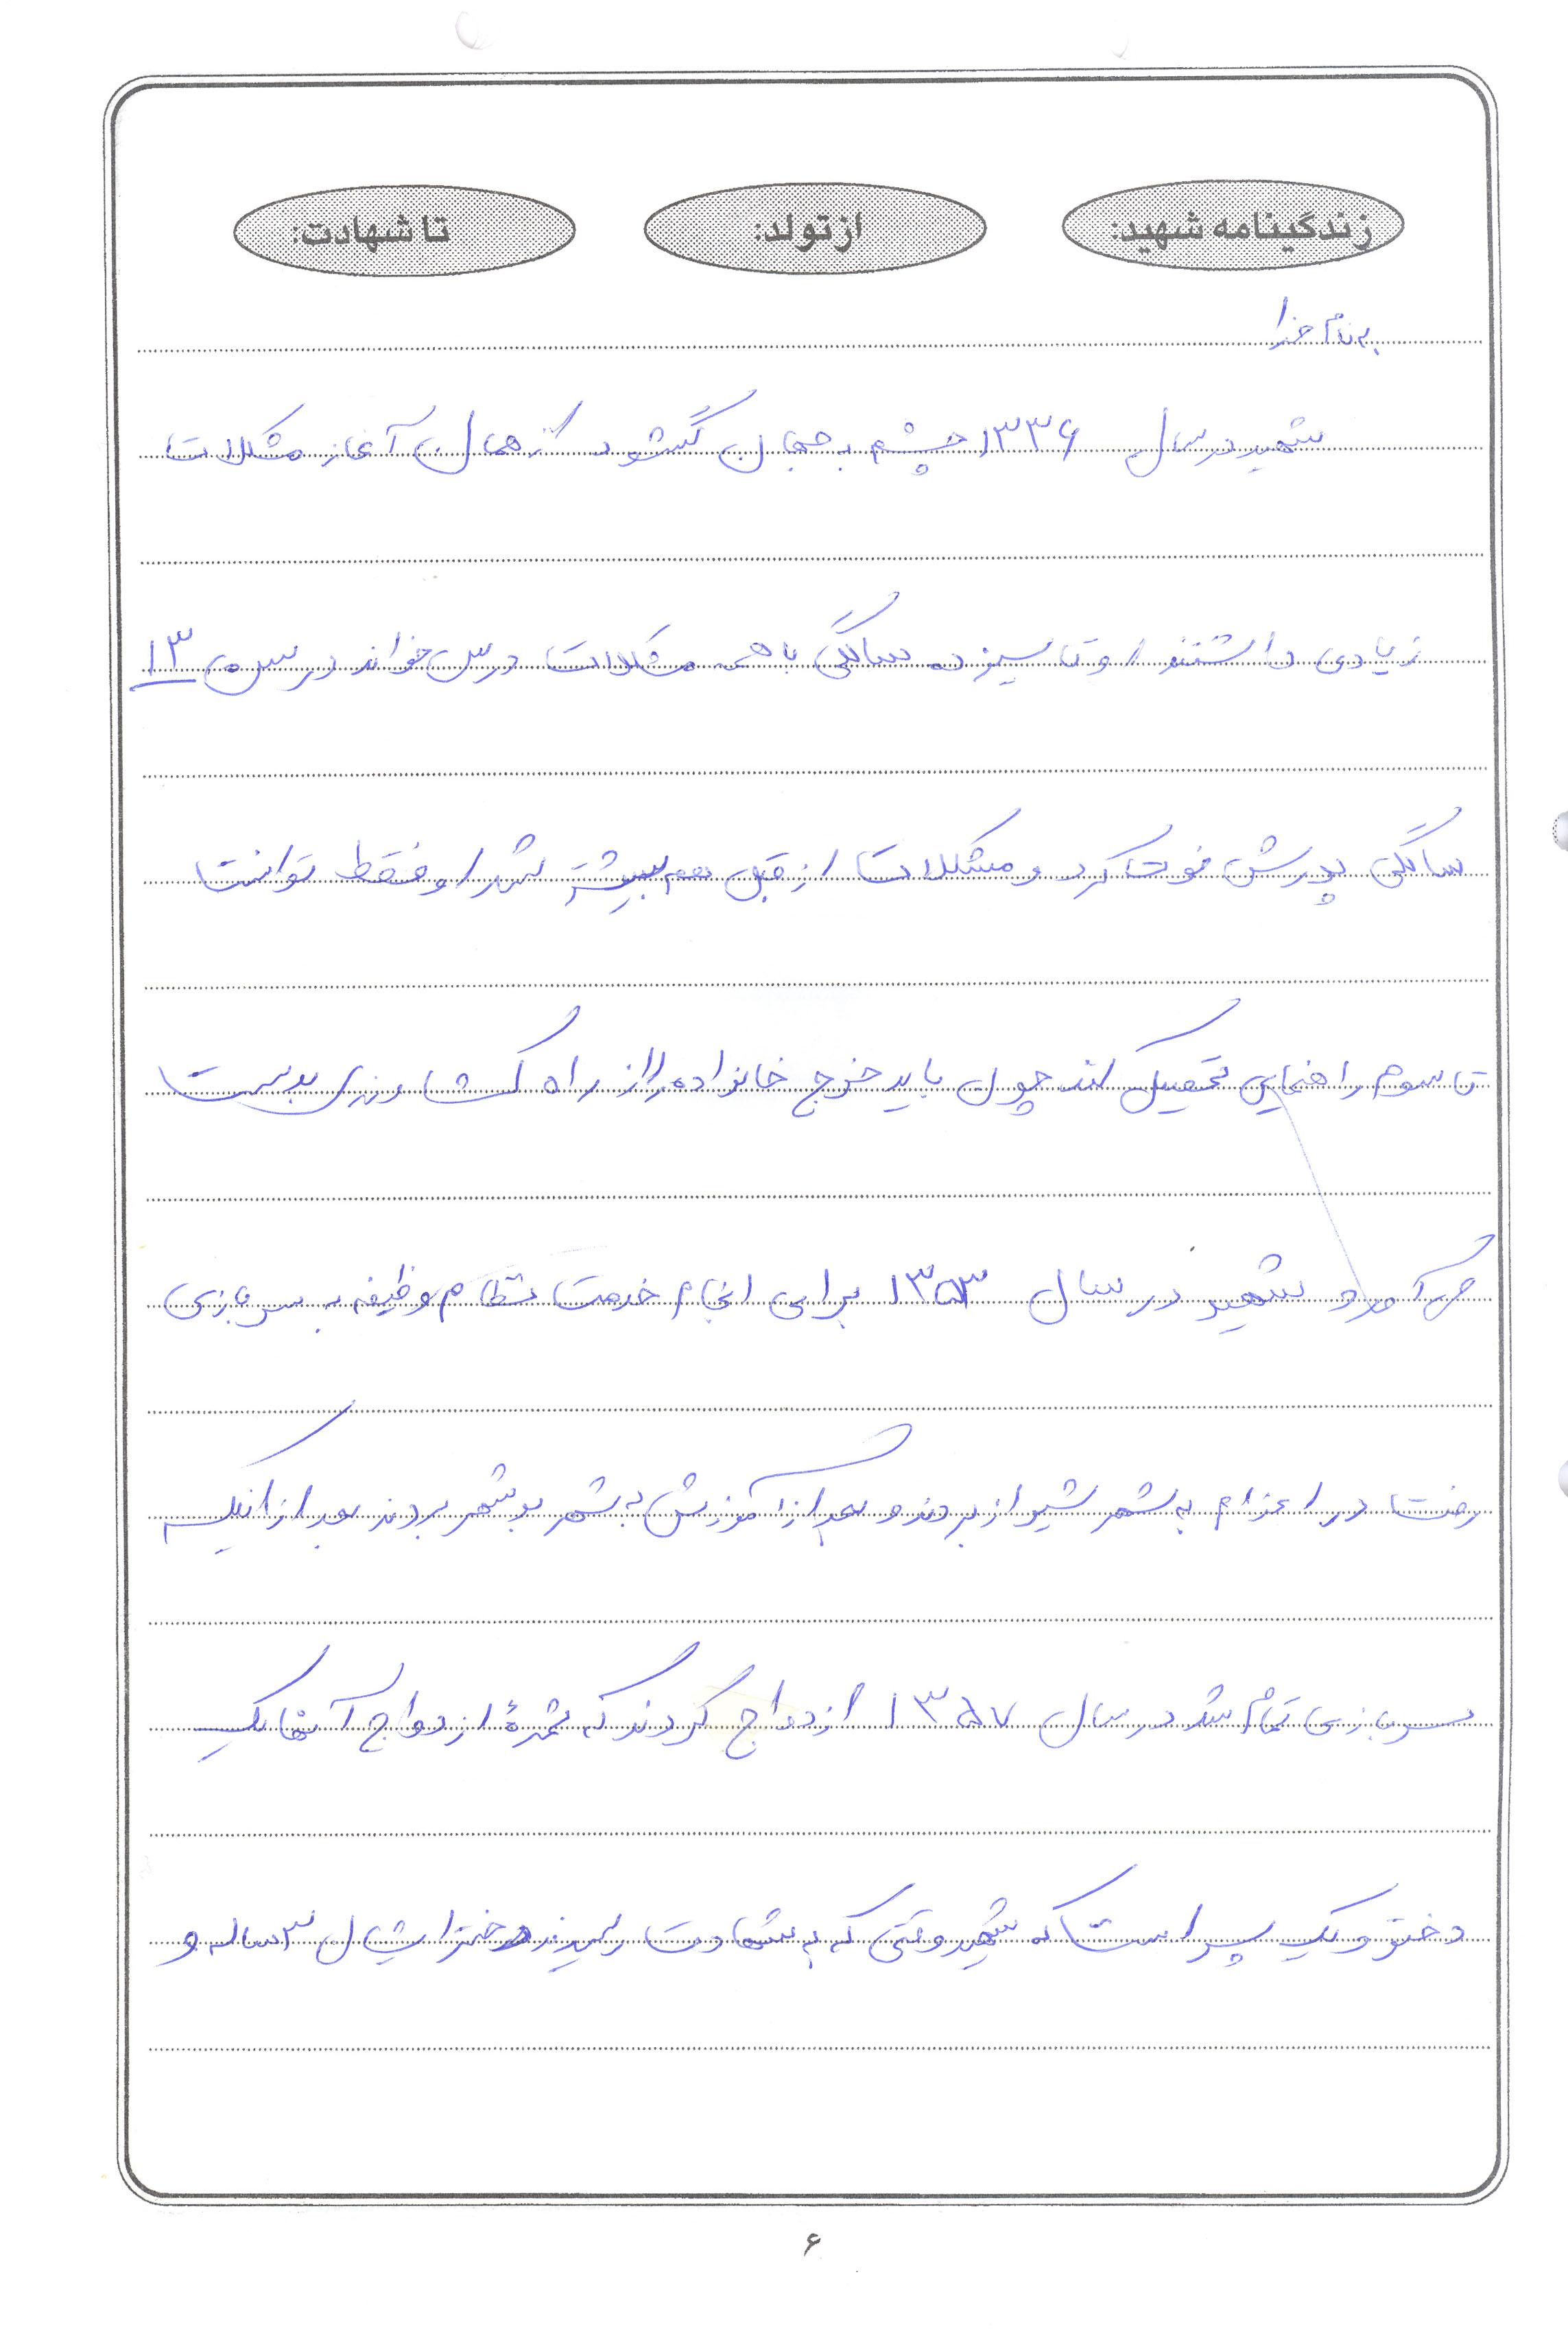 زندگینامه شهید: از تولد: تا شهادت:
به نام خدا
شهید در سال ۱۳۳۶ چشم به جهان گشود از همان آغاز مشکلات
زیادی داشتند او تا سیزده سالگی با همه مشکلات درس خواند در سن ۱۳
سالگی پدرش فوت کرد و مشکلات از قبل هم بیشتر شد او فقط توانست
تا سوم راهنمایی تحصیل کند چون باید خرج خانواده را از راه کشاورزی بدست
می آورد شهید در سال ۱۳۵۳ برای انجام خدمت نظام وظیفه به سربازی
رفت در اعزام به شهر شیراز بردند و بعد از آموزش به شهر بوشهر بردند بعد از اینکه
سربازی تمام شد در سال ۱۳۵۷ ازدواج کردند که ثمرهٔ ازدواج آنها یک
دختر و یک پسر است که شهید وقتی که به شهادت رسیدند دختر ایشان ۳ ساله و
۶